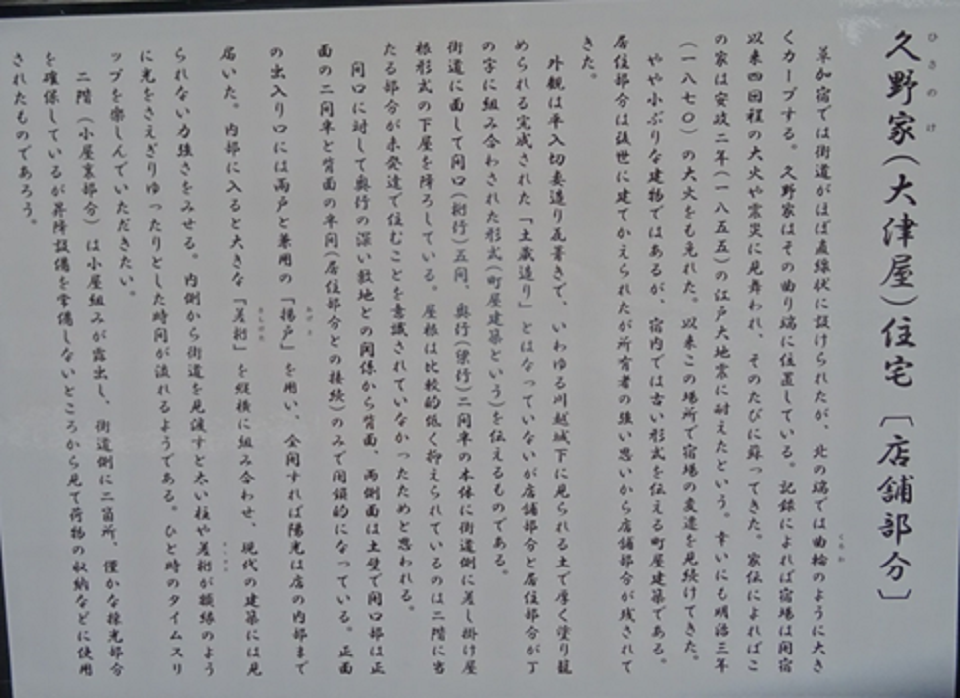 久野家（大津屋）住宅〔店舗部分〕
ひさのけ
草加宿では街道がほぼ直線状に設けられたが、北の端では曲輪のように大き
くるわ
くカーブする。久野家はその曲り端に位置している。記録によれば宿場は開宿
以来四回程の大火や震災に見舞われ、そのたびに蘇ってきた。家伝によればこ
の家は安政二年（一八五五）の江戸大地震に耐えたという。幸いにも明治三年
（一八七〇）の大火をも免れた。以来この場所で宿場の変遷を見続けてきた。
やや小ぶりな建物ではあるが、宿内では古い形式を伝える町屋建築である。
居住部分は後世に建てかえられたが所有者の強い思いから店舗部分が残されて
きた。
外観は平入切妻造り瓦葺きで、いわゆる川越城下に見られる土で厚く塗り籠
められる完成された「土蔵造り」とはなっていないが店舗部分と居住部分が丁
の字に組み合わされた形式（町屋建築という）を伝えるものである。
街道に面して間口（桁行）五間、奥行（梁行）二間半の本体に街道側に差し掛け屋
根形式の下屋を降ろしている。屋根は比較的低く抑えられているのは二階に当
たる部分が未発達で住むことを意識されていなかったためと思われる。
間口に対して奥行の深い敷地との関係から背面、両側面は土壁で開口部は正
面の二間半と背面の半間（居住部分との接続）のみで閉鎖的になっている。正面
の出入り口には雨戸と兼用の「揚戸」を用い、全開すれば陽光は店の内部まで
あげど
届いた。内部に入ると大きな「差桁」を縦横に組み合わせ、現代の建築には見
さしげた
られない力強さをみせる。内側から街道を見渡すと太い柱や差桁が額縁のよう
に光をさえぎりゆったりとした時間が流れるようである。ひと時のタイムスリ
ップを楽しんでいただきたい。
二階（小屋裏部分）は小屋組みが露出し、街道側に二箇所、僅かな採光部分
を確保しているが昇降設備を常備しないところから見て荷物の収納などに使用
されたものであろう。